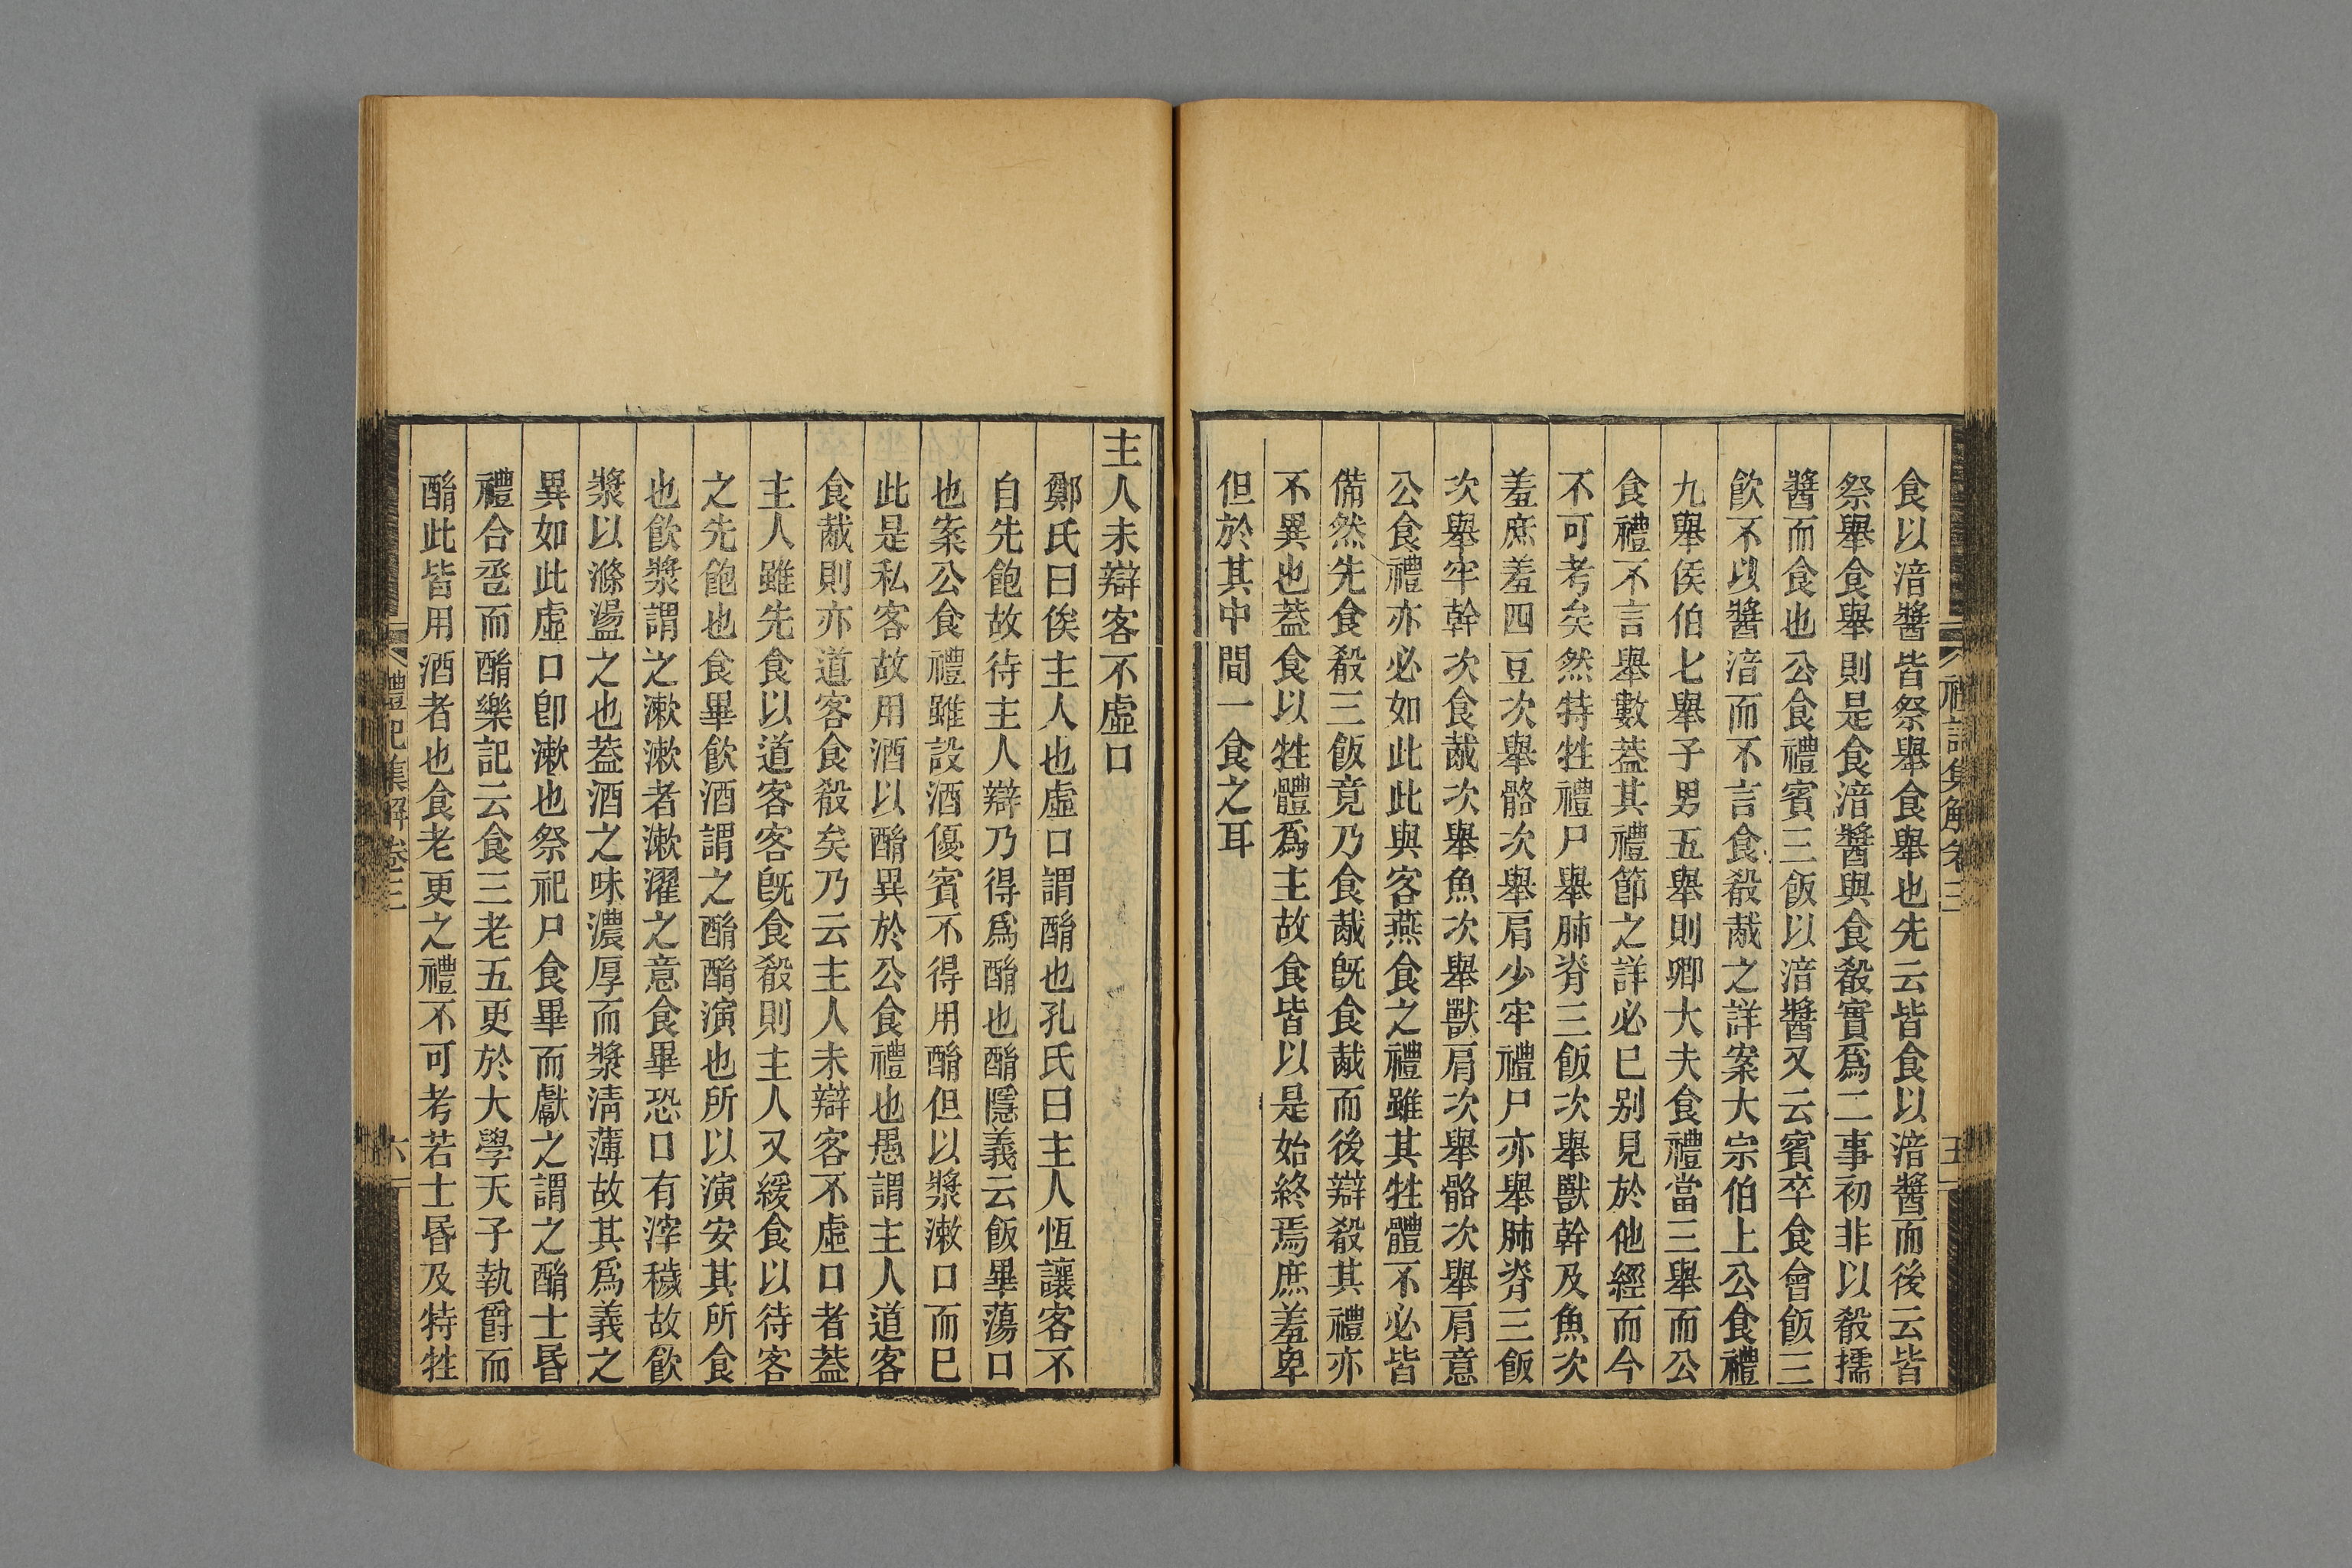 禮記集解卷三
五
食以湆醬皆祭舉食舉也先云皆食以湆醬而後云皆
祭舉食舉則是食湆醬與食殽實爲二事初非以殽擩
醬而食也公食禮賓三飯以湆醬又云賓卒食會飯三
飮不以醬湆而不言食殽胾之詳案大宗伯上公食禮
九舉侯伯七舉子男五舉則卿大夫食禮當三舉而公
食禮不言舉數葢其禮節之詳必已别見於他經而今
不可考矣然特牲禮尸舉肺脊三飯次舉獸幹及魚次
羞庶羞四豆次舉骼次舉肩少牢禮尸亦舉肺脊三飯
次舉牢幹次食胾次舉魚次舉獸肩次舉骼次舉肩意
公食禮亦必如此此與客燕食之禮雖其牲體不必皆
備然先食殽三飯竟乃食胾旣食胾而後辯殽其禮亦
不異也葢食以牲體爲主故食皆以是始終焉庶羞卑
但於其中間一食之耳
主人未辯客不虛口
鄭氏曰俟主人也虛口謂酳也孔氏曰主人恆讓客不
自先飽故待主人辯乃得爲酳也酳隱義云飯畢蕩口
也案公食禮雖設酒優賓不得用酳但以漿漱口而已
此是私客故用酒以酳異於公食禮也愚謂主人道客
食胾則亦道客食殽矣乃云主人未辯客不虛口者葢
主人雖先食以道客客旣食殽則主人又緩食以待客
之先飽也食畢飮酒謂之酳酳演也所以演安其所食
也飮漿謂之漱漱者漱濯之意食畢恐口有滓穢故飮
漿以滌盪之也葢酒之味濃厚而漿淸薄故其爲義之
異如此虛口卽漱也祭祀尸食畢而獻之謂之酳士昏
禮合巹而酳樂記云食三老五更於大學天子執爵而
酳此皆用酒者也食老更之禮不可考若士昏及特牲
禮記集解卷三
六